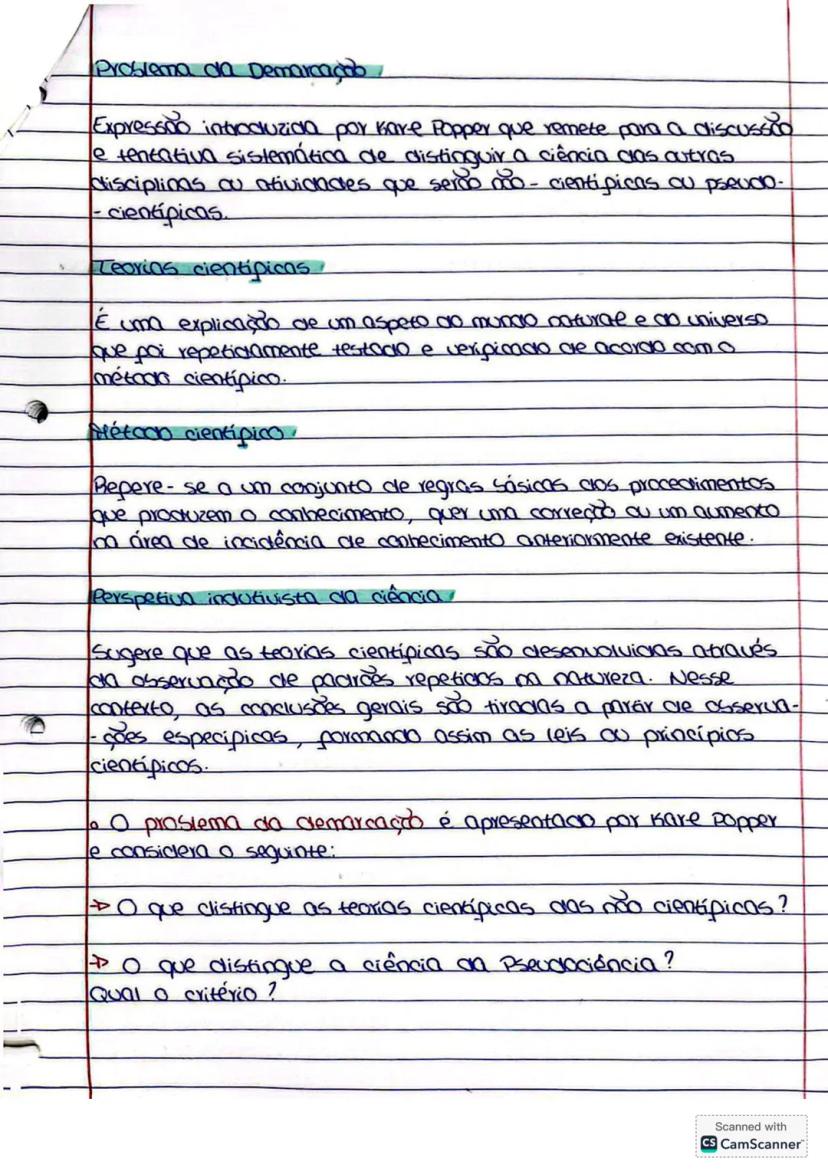 Problema da Demarcação
Expressão introduzida por Karl Popper que remete para a discussão
e tentativa sistemática de distinguir a ciência das outras
disciplinas ou atividades que serão não-científicas ou pseudo-
-científicas.
Teorias científicas
É uma explicação de um aspeto do mundo natural e do universo
que foi repetidamente testado e verificado de acordo com o
método científico.
Método científico
Refere-se a um conjunto de regras básicas dos procedimentos
que produzem o conhecimento, quer uma correção ou um aumento
na área de incidência de conhecimento anteriormente existente.
Perspetiva indutivista da ciência
Sugere que as teorias científicas são desenvolvidas através
da observação de padrões repetidos na natureza. Nesse
contexto, as conclusões gerais são tiradas a partir de observa-
-ções específicas, formando assim as leis ou princípios
científicos.
• O problema da demarcação é apresentado por Karl Popper
e considera o seguinte:
→ O que distingue as teorias científicas das não científicas?
→ O que distingue a ciência da Pseudociência?
Qual o critério?
Scanned with
CS CamScanner